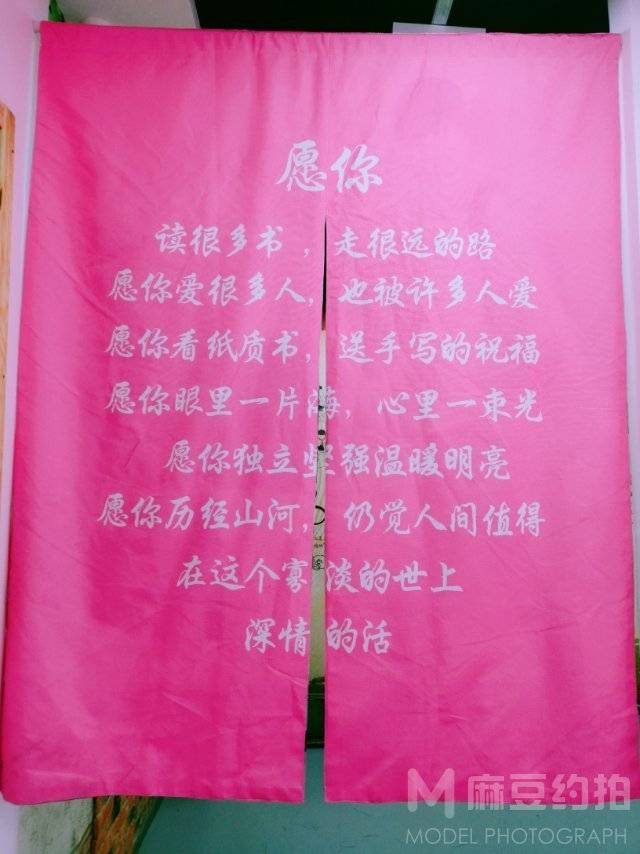 愿你
读很多书，走很远的路
愿你爱很多人，也被许多人爱
愿你看纸质书，送手写的祝福
愿你眼里一片海，心里一束光
愿你独立坚强温暖明亮
愿你历经山河，仍觉人间值得
在这个寡淡的世上
深情的活
M 麻豆约拍
MODEL PHOTOGRAPH